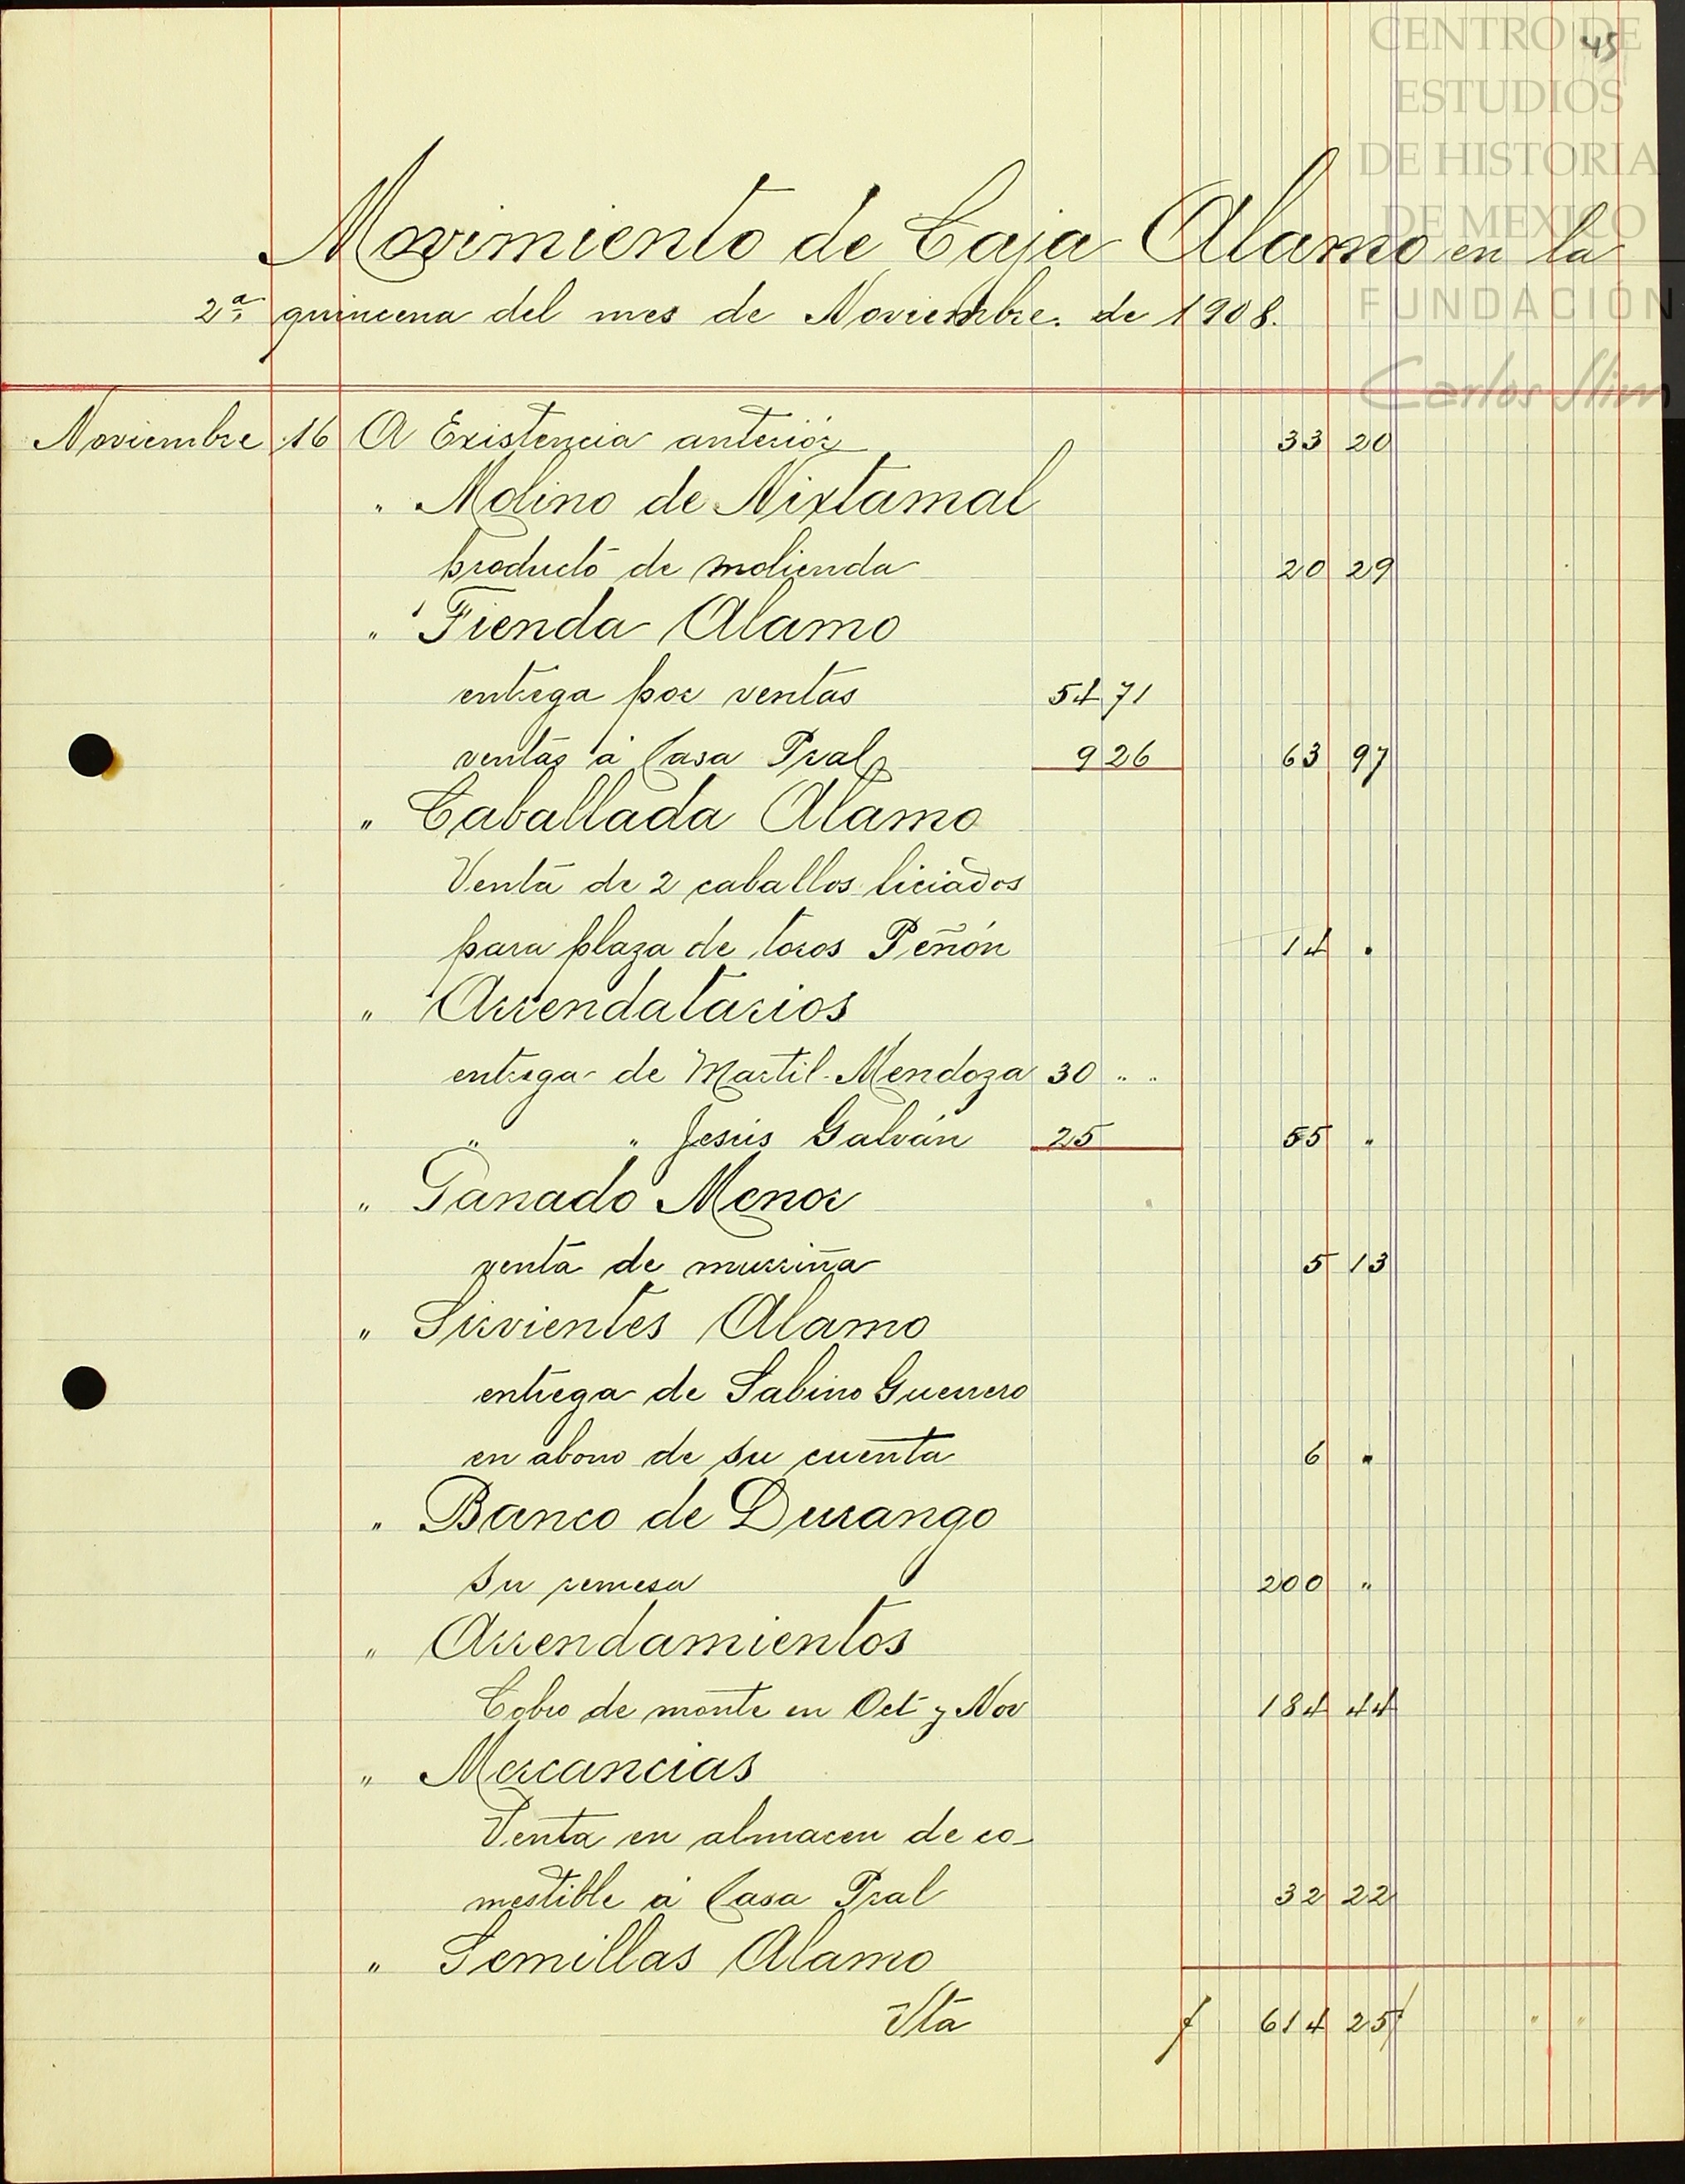 45
CENTRO DE
ESTUDIOS
DE HISTORIA
DE MEXICO
FUNDACIÓN
Carlos Slim
Movimiento de Caja Alamo en la
2ª quincena del mes de Noviembre. de 1908.
Noviembre 16 A Existencia anteriór 33 20
" Molino de Nixtamal
producto de molienda 20 29
" Tienda Alamo
entrega por ventas 54 71
ventas á Casa Pral 9 26 63 97
" Caballada Alamo
Venta de 2 caballos liciados
para plaza de toros Peñón 14 "
" Arrendatarios
entrega de Martil. Mendoza 30 " "
" " Jesús Galván 25 55 "
" Ganado Menor
venta de murriña 5 13
" Sirvientes Alamo
entrega de Sabino Guerrero
en abono de su cuenta 6 "
" Banco de Durango
su remesa 200 "
" Arrendamientos
Cobro de monte en Oct y Nov 184 44
" Mercancias
Venta en almacen de co-
mestible á Casa Pral 32 22
" Semillas Alamo
Vta 614 25 " "